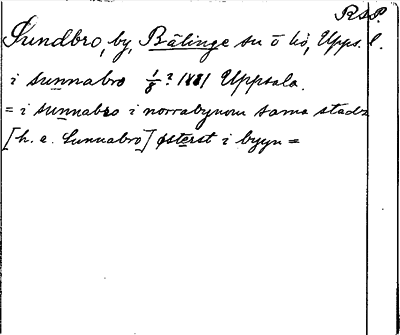 R.S.P.
Sundbro, by, Bälinge sn o hd, Upps. l.
i sunnabro 1/8? 1881 Uppsala.
= i sunnabro i norrabynom sama stadz
[h. e. Sunnabro] østerst i byyn =